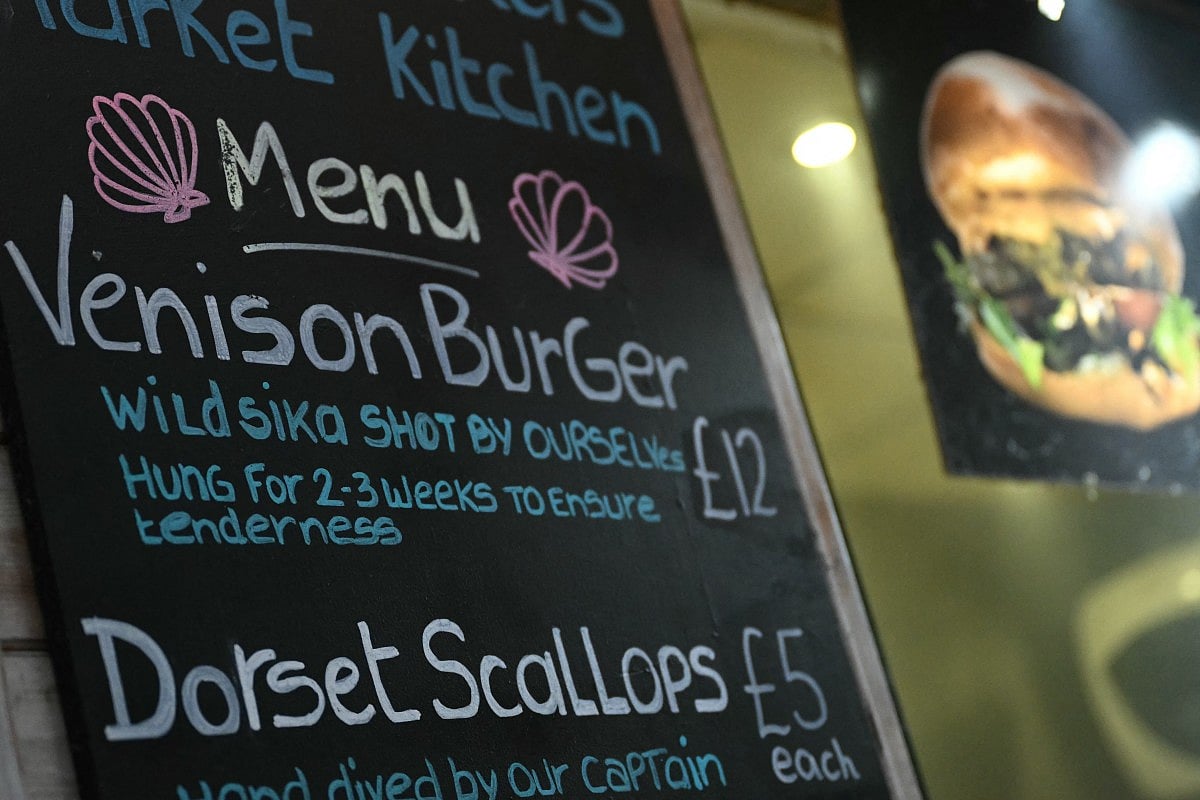 Market Kitchen
Menu
Venison Burger
Wild sika shot by ourselves £12
Hung for 2-3 weeks to ensure
tenderness
Dorset Scallops £5
each
Hand dived by our captain